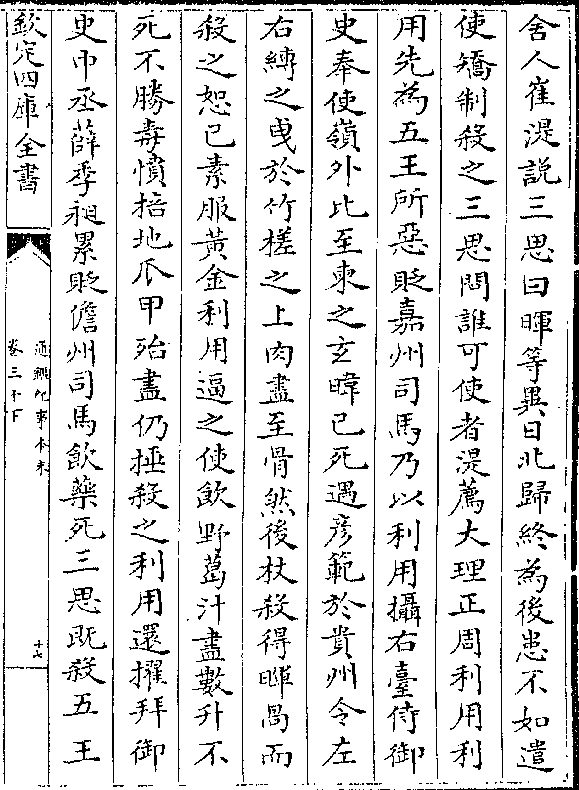 舍人崔湜説三思曰暉等異日北歸終為後患不如遣
使矯制殺之三思問誰可使者湜薦大理正周利用利
用先為五王所惡貶嘉州司馬乃以利用攝右臺侍御
史奉使嶺外比至柬之玄暐已死遇彦範於貴州令左
右縛之曳於竹槎之上肉盡至骨然後杖殺得暉咼而
殺之恕已素服黄金利用逼之使飲野葛汁盡數升不
死不勝毒憤掊地爪甲殆盡仍捶殺之利用還擢拜御
史中丞薛季昶累貶儋州司馬飲藥死三思既殺五王
欽定四庫全書
通鑑紀事本末
卷三十下
十七